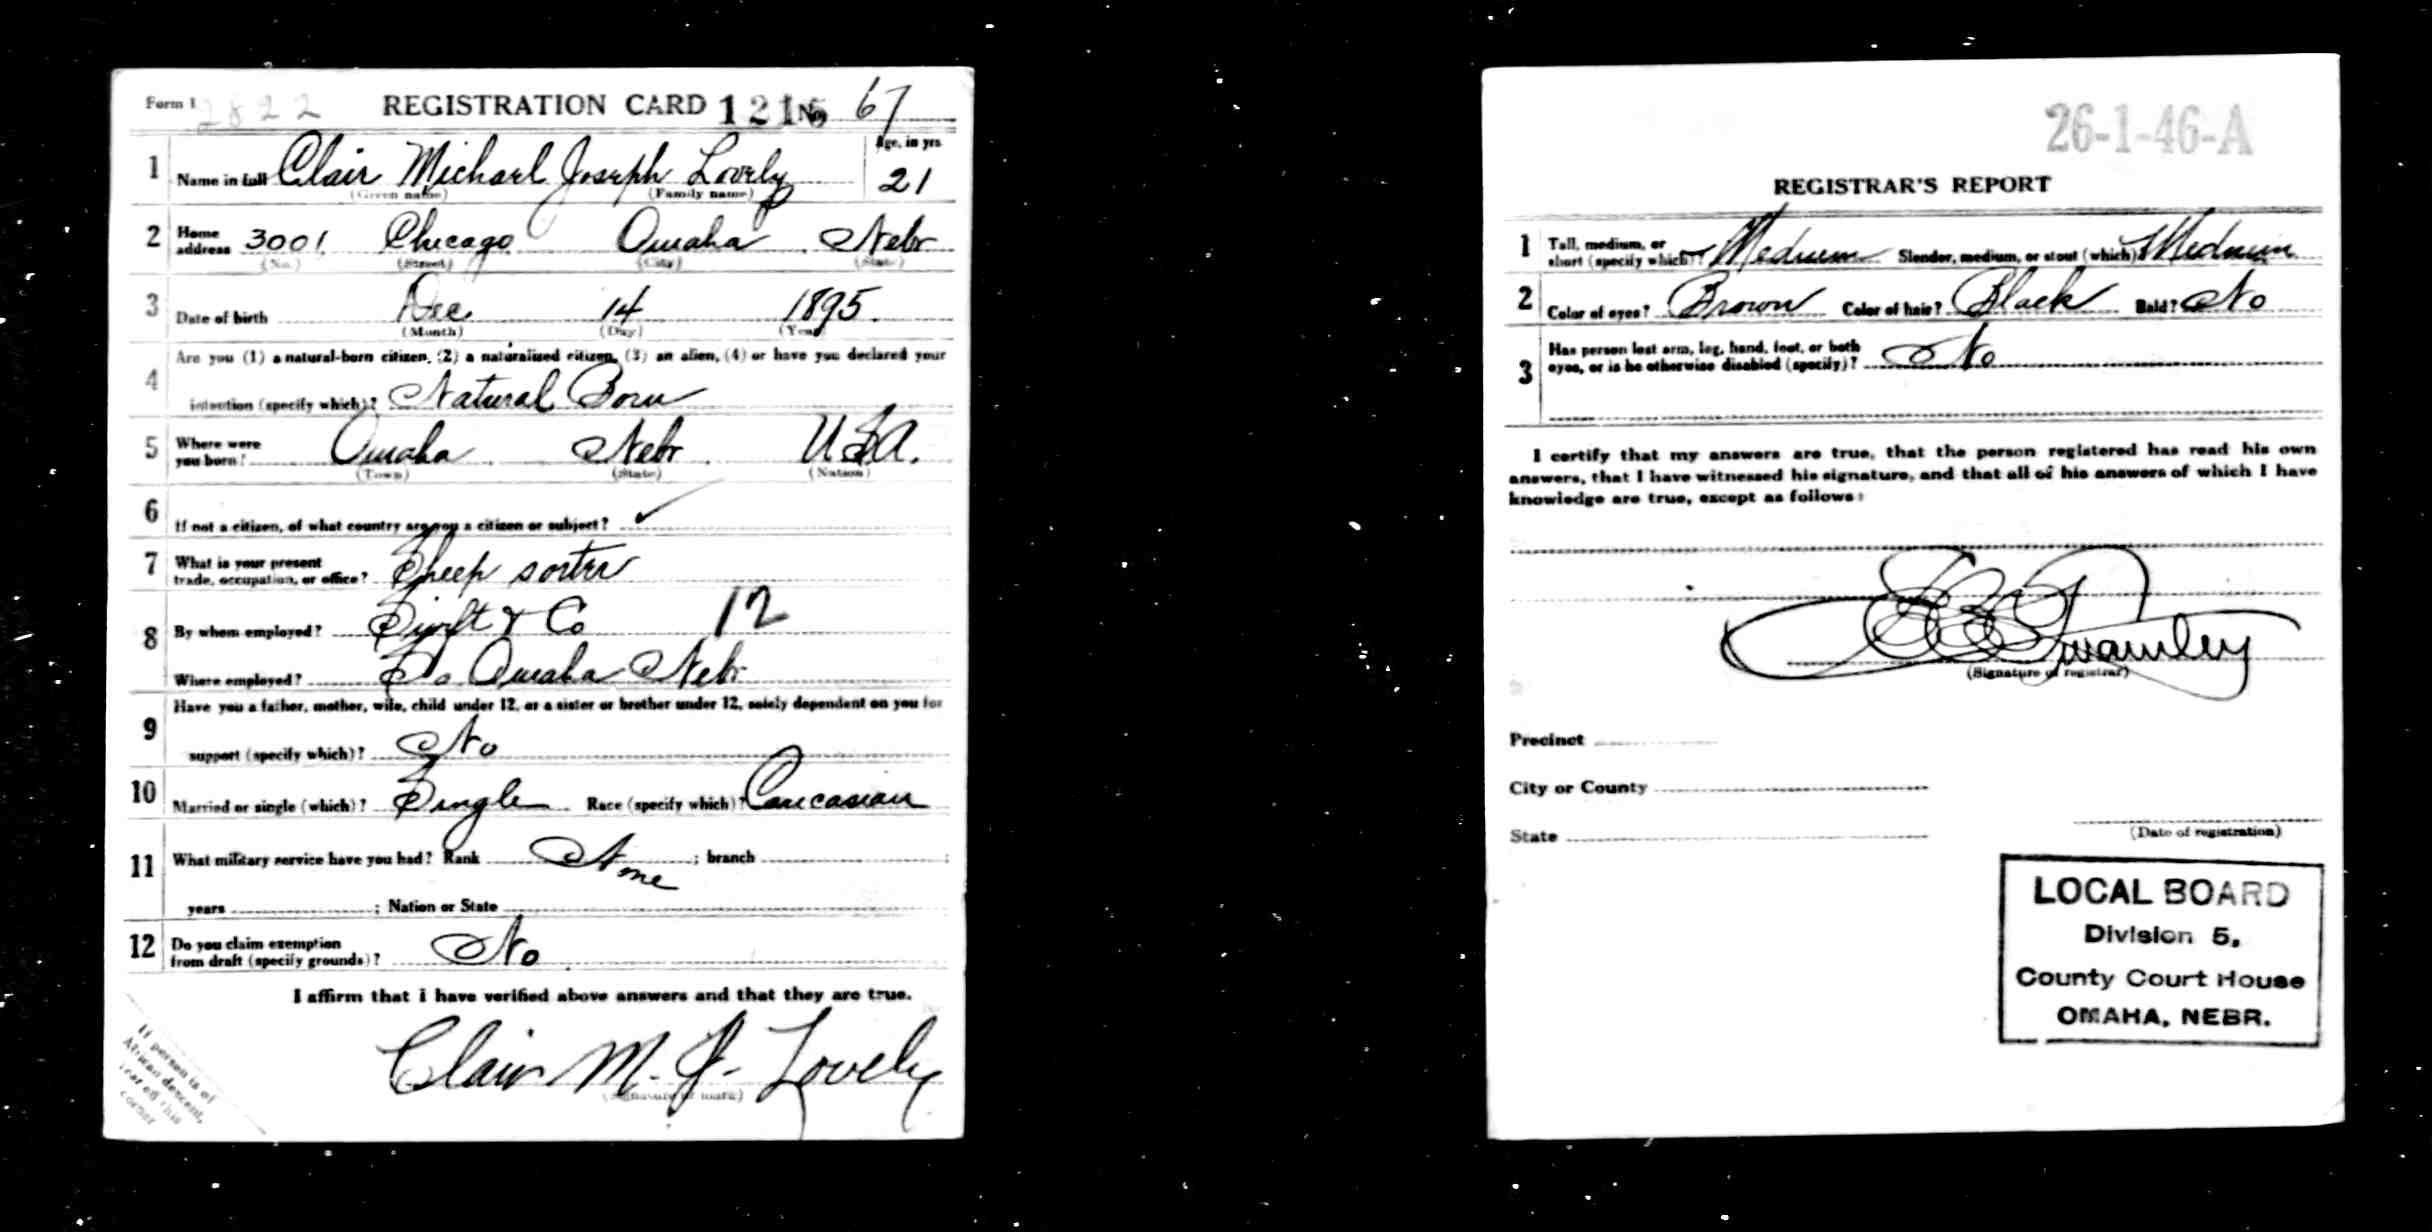 Form 1 2822 REGISTRATION CARD 1215 No. 67
1 Name in full Clair Michael Joseph Lovely Age, in yrs
(Given name) (Family name) 21
2 Home address 3001 Chicago Omaha Nebr
(No.) (Street) (City) (State)
3 Date of birth Dec 14 1895
(Month) (Day) (Year)
4 Are you (1) a natural-born citizen, (2) a naturalized citizen, (3) an alien, (4) or have you declared your
intention (specify which)? Natural Born
5 Where were you born? Omaha Nebr USA.
(Town) (State) (Nation)
6 If not a citizen, of what country are you a citizen or subject?
7 What is your present
trade, occupation, or office? Sheep sorter
8 By whom employed? Swift & Co 12
Where employed? So Omaha Nebr
9 Have you a father, mother, wife, child under 12, or a sister or brother under 12, solely dependent on you for
support (specify which)? No
10 Married or single (which)? Single Race (specify which)? Caucasian
11 What military service have you had? Rank None ; branch ;
years ; Nation or State
12 Do you claim exemption
from draft (specify grounds)? No
I affirm that I have verified above answers and that they are true.
Clair M. J. Lovely
(Signature or mark)
If person is of
African descent,
tear off this
corner
26-1-46-A
REGISTRAR'S REPORT
1 Tall, medium, or
short (specify which)? Medium Slender, medium, or stout (which)? Medium
2 Color of eyes? Brown Color of hair? Black Bald? No
3 Has person lost arm, leg, hand, foot, or both
eyes, or is he otherwise disabled (specify)? No
I certify that my answers are true, that the person registered has read his own
answers, that I have witnessed his signature, and that all of his answers of which I have
knowledge are true, except as follows:
(Signature of registrar)
Precinct
City or County
State (Date of registration)
LOCAL BOARD
Division 5,
County Court House
OMAHA, NEBR.